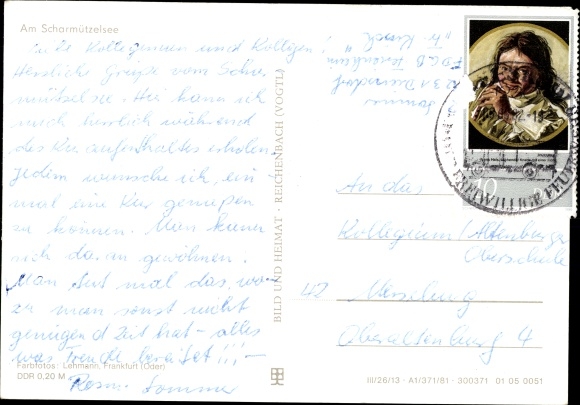 Am Scharmützelsee
Liebe Kolleginnen und Kollegen!
Herzlich Grüße vom Schar-
mützelsee. Hier kann ich
mich herrlich während
des Kuraufenthaltes erholen.
Jedem wünsche ich, ein-
mal eine Kur genießen
zu können. Man kann
sich daran gewöhnen.
Man tut mal das, wo-
zu man sonst nicht
genügend Zeit hat - alles
was Freude bereitet!!! -
Sommer
Farbfotos: Lehmann, Frankfurt (Oder)
DDR 0,20 M
BILD UND HEIMAT · REICHENBACH (VOGTL)
Sommer
1231
FDGB
An das
Kollegium/Altenburger
Oberschule
42 Merseburg
Oberaltenburg 4
III/26/13 · A1/371/81 · 300371 01 05 0051
10
DDR
FREIWILLIGE